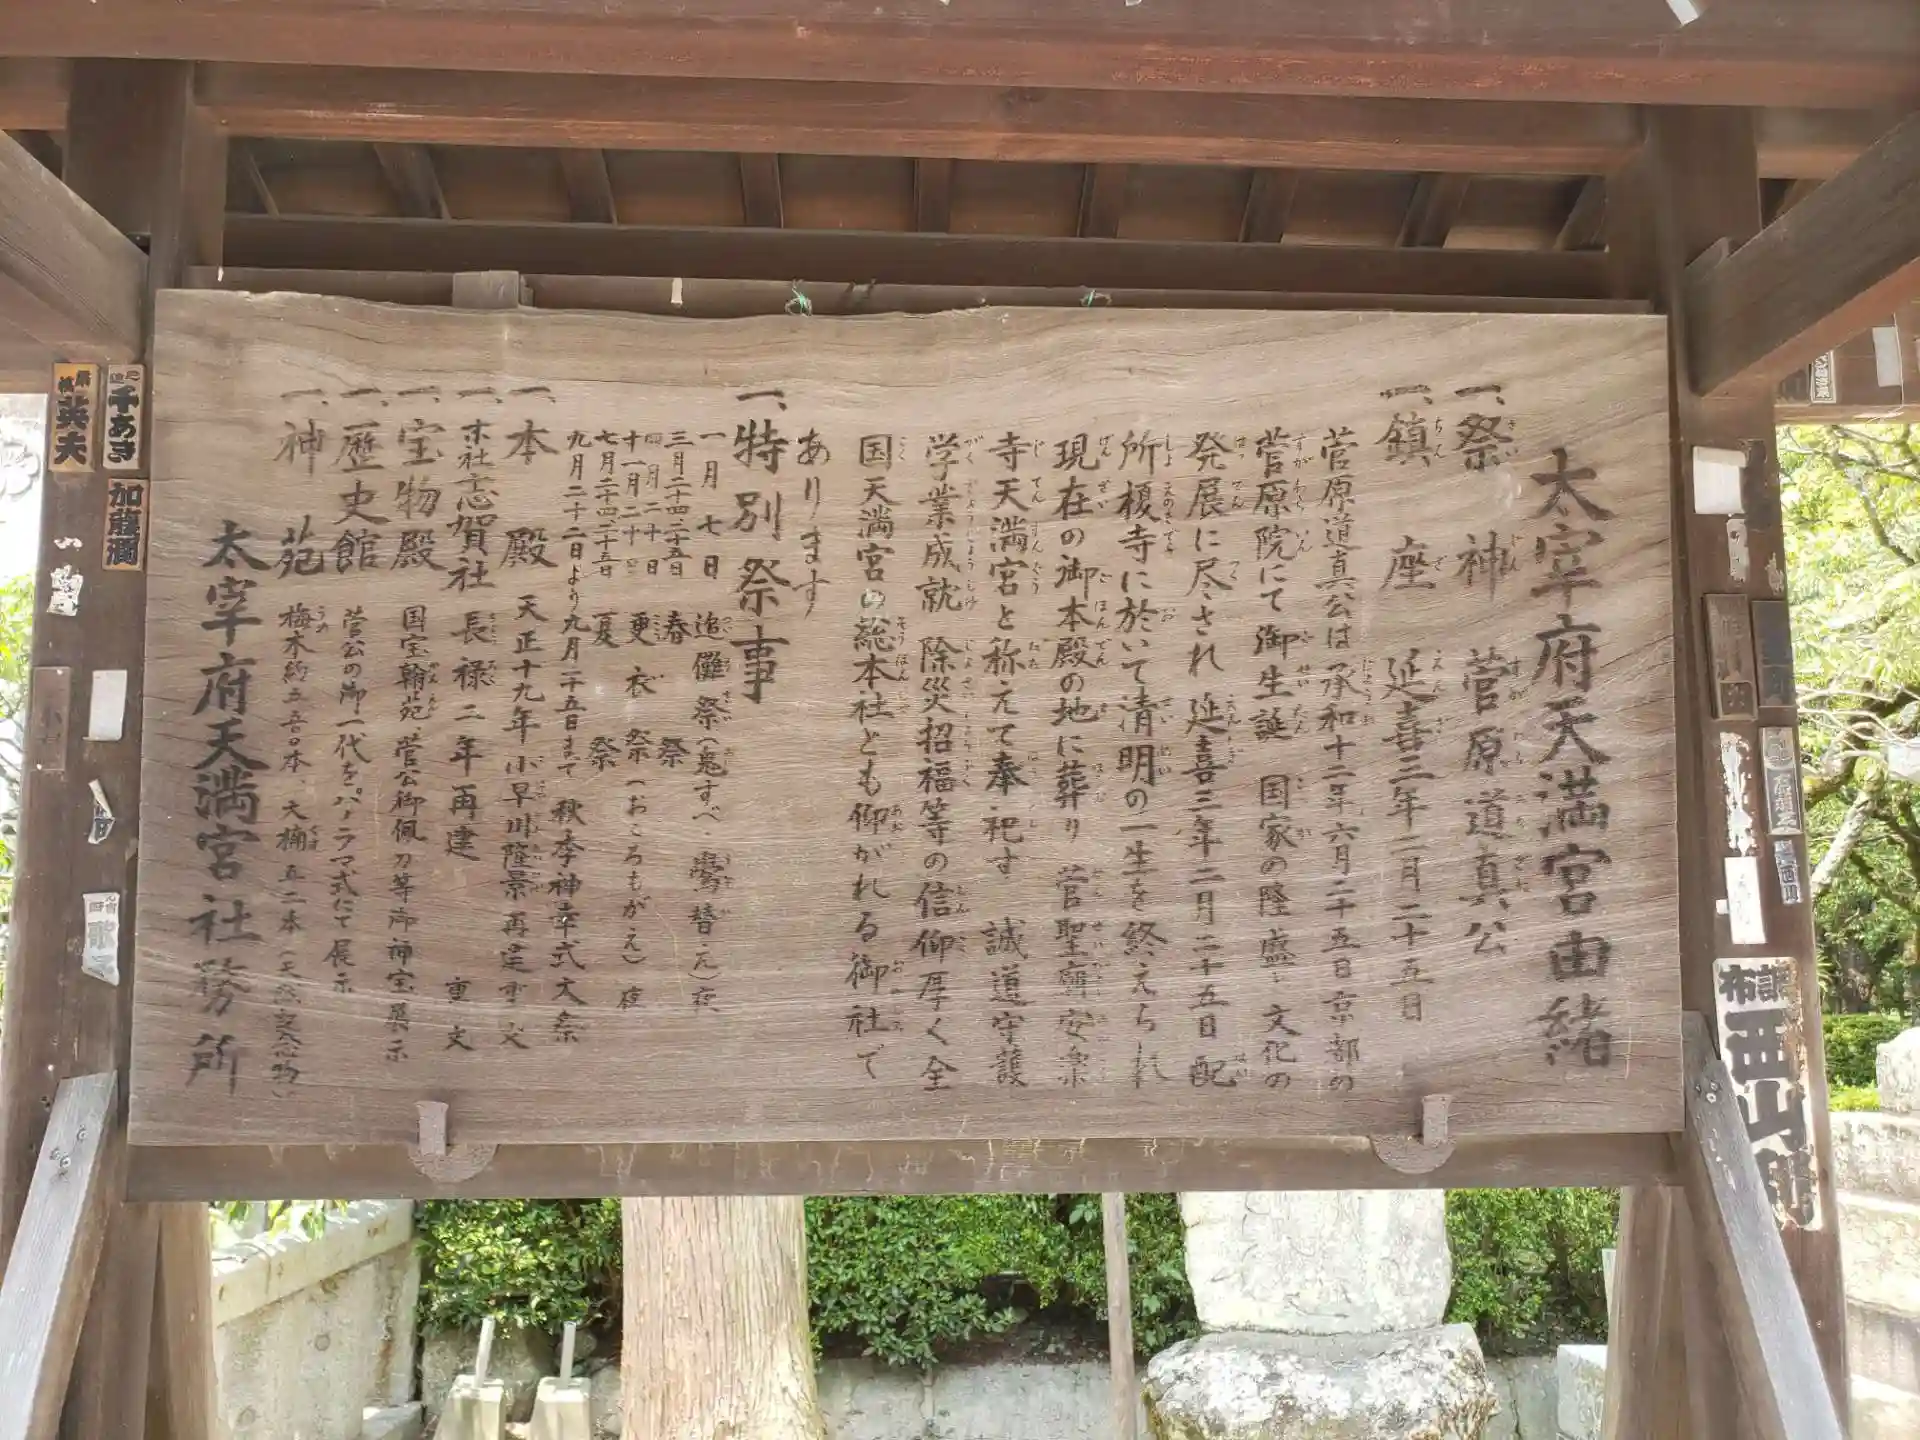 太宰府天満宮由緒
一、祭神 菅原道真公
一、鎮座 延喜三年二月二十五日
菅原道真公は承和十二年六月二十五日京都の
菅原院にて御生誕 国家の隆盛と文化の
発展に尽され 延喜三年二月二十五日 配
所榎寺に於いて清明の一生を終えられ
現在の御本殿の地に葬り 菅聖廟安楽
寺天満宮と称えて奉祀す 誠道守護
学業成就 除災招福等の信仰厚く全
国天満宮の総本社とも仰がれる御社で
あります
一、特別祭事
一月 七日 追儺祭(鬼すべ・鷽替え)夜
三月二十四、二十五日 春祭
四月 二十日
十一月二十日 更衣祭(おころもがえ)夜
七月二十四、二十五日 夏祭
九月二十二日より九月二十五日まで 秋季神幸式大祭
一、本殿 天正十九年 小早川隆景再建 重文
一、末社志賀社 長禄二年再建 重文
一、宝物殿 国宝翰苑、菅公御佩刀等御神宝展示
一、歴史館 菅公の御一代をパノラマ式にて展示
一、神苑 梅木約五〇〇〇本、大楠五二本(天然記念物)
太宰府天満宮社務所
千あき
英夫
加藤
西山